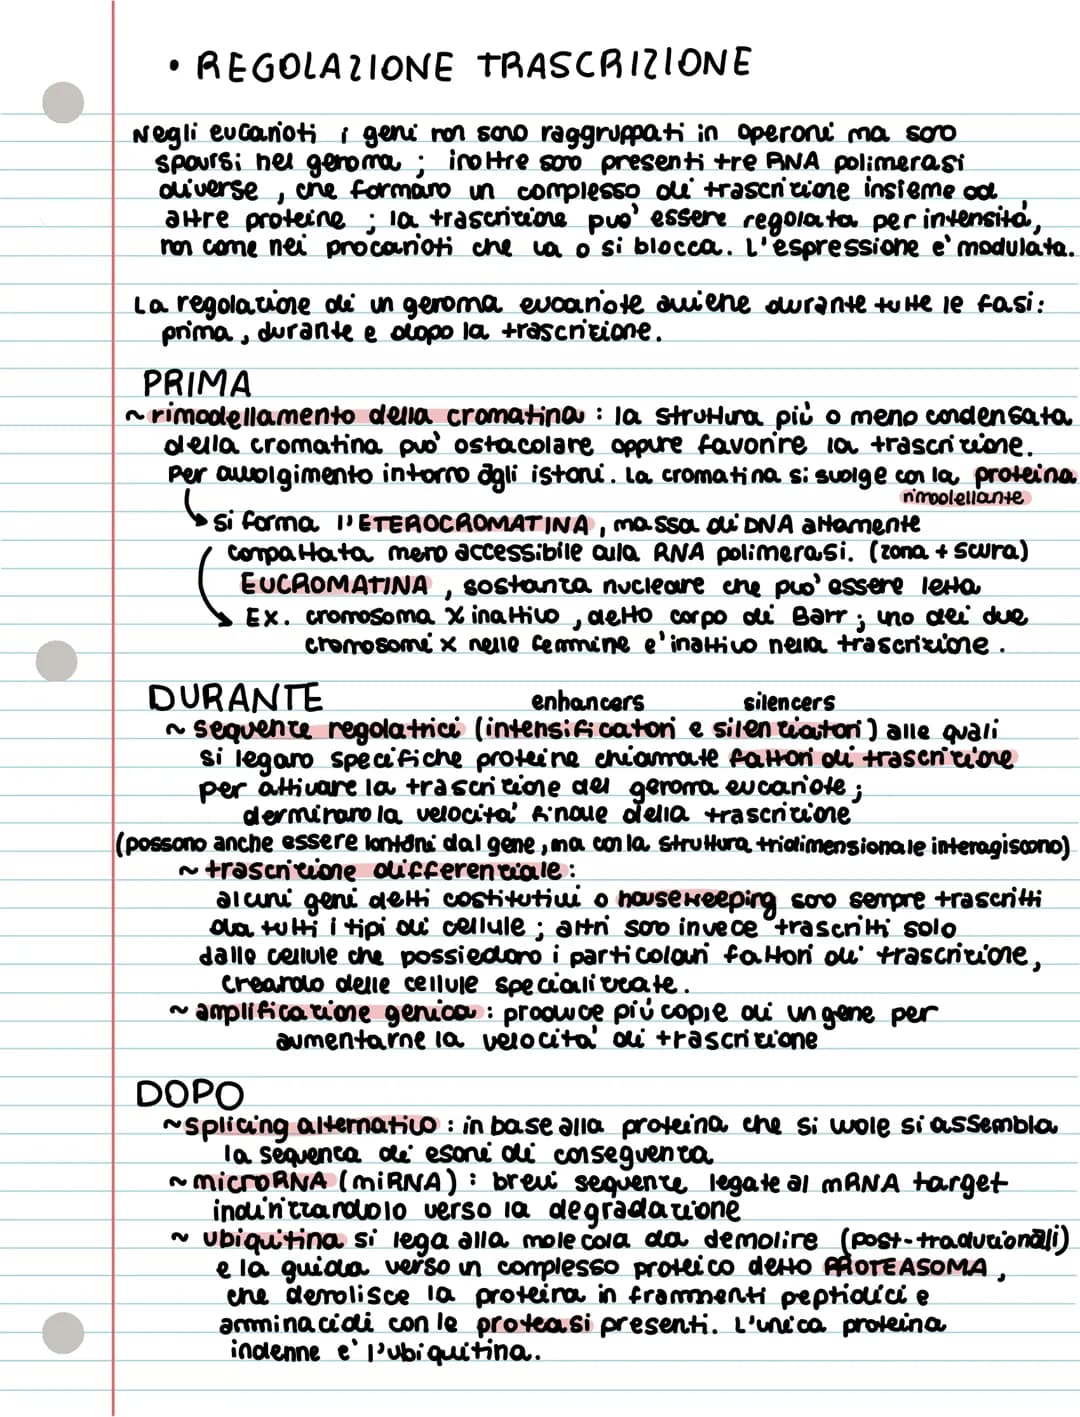 • REGOLAZIONE TRASCRIZIONE
Negli eucarioti i geni non sono raggruppati in operoni ma sono
sparsi nel genoma ; inoltre sono presenti tre RNA polimerasi
diverse , che formano un complesso di trascrizione insieme ad
altre proteine ; la trascrizione puo' essere regolata per intensità,
non come nei procarioti che va o si blocca. L'espressione e' modulata.
La regolazione di un genoma eucariote avviene durante tutte le fasi:
prima , durante e dopo la trascrizione.
PRIMA
~ rimodellamento della cromatina : la struttura più o meno condensata
della cromatina puo' ostacolare oppure favorire la trascrizione.
Per avvolgimento intorno agli istoni. La cromatina si svolge con la proteina
rimodellante
si forma l'ETEROCROMATINA , massa di DNA altamente
compattata meno accessibile alla RNA polimerasi. (zona + scura)
EUCROMATINA , sostanza nucleare che puo' essere letta
Ex. cromosoma X inattivo , detto corpo di Barr ; uno dei due
cromosomi x nelle femmine e' inattivo nella trascrizione .
DURANTE
enhancers silencers
~ sequenze regolatrici (intensificatori e silenziatori) alle quali
si legano specifiche proteine chiamate fattori di trascrizione
per attivare la trascrizione del genoma eucariote ;
derminano la velocita' finale della trascrizione
(possono anche essere lontani dal gene , ma con la struttura tridimensionale interagiscono)
~ trascrizione differenziale :
alcuni geni detti costitutivi o housekeeping sono sempre trascritti
da tutti i tipi di cellule ; altri sono invece trascritti solo
dalle cellule che possiedono i particolari fattori di trascrizione,
creando delle cellule specializzate.
~ amplificazione genica : produce più copie di un gene per
aumentarne la velocita' di trascrizione
DOPO
~ splicing alternativo : in base alla proteina che si vuole si assembla
la sequenza di esoni di conseguenza
~ microRNA (miRNA) : brevi sequenze legate al mRNA target
indirizzandolo verso la degradazione
~ ubiquitina si lega alla molecola da demolire (post-traduzionali)
e la guida verso un complesso proteico detto PROTEASOMA ,
che demolisce la proteina in frammenti peptidici e
amminacidi con le proteasi presenti. L'unica proteina
indenne e' l'ubiquitina.